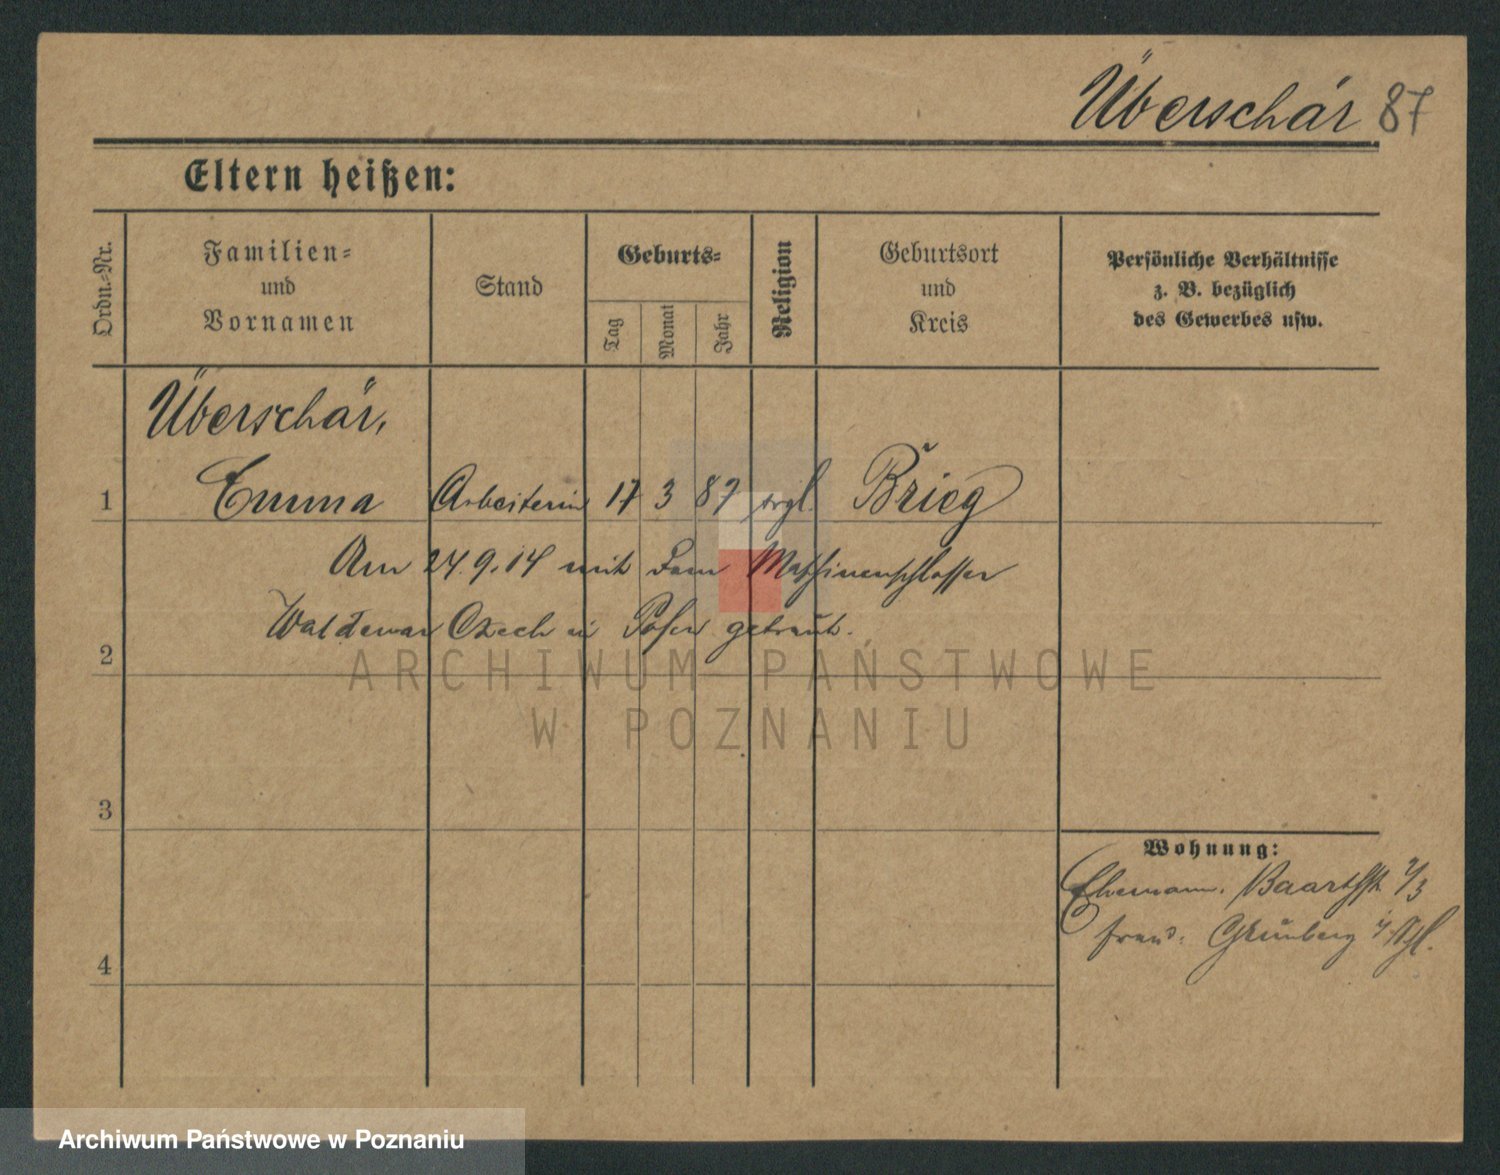 Überschär 87
Eltern heißen:
Ordn.-Nr.
Familien-
und
Vornamen
Stand
Geburts-
Tag
Monat
Jahr
Religion
Geburtsort
und
Kreis
Persönliche Verhältnisse
z. B. bezüglich
des Gewerbes usw.
Überschär,
1 Emma Arbeiterin 17 3 87 evgl. Brieg
Am 24.9.14 mit dem Maschinenschlosser
Waldemar Czech in Posen getraut.
2
3
4
Wohnung:
Ehemann. Baarthstr.
Frau: Grünberg i/Schl.
ARCHIWUM PAŃSTWOWE
W POZNANIU
Archiwum Państwowe w Poznaniu